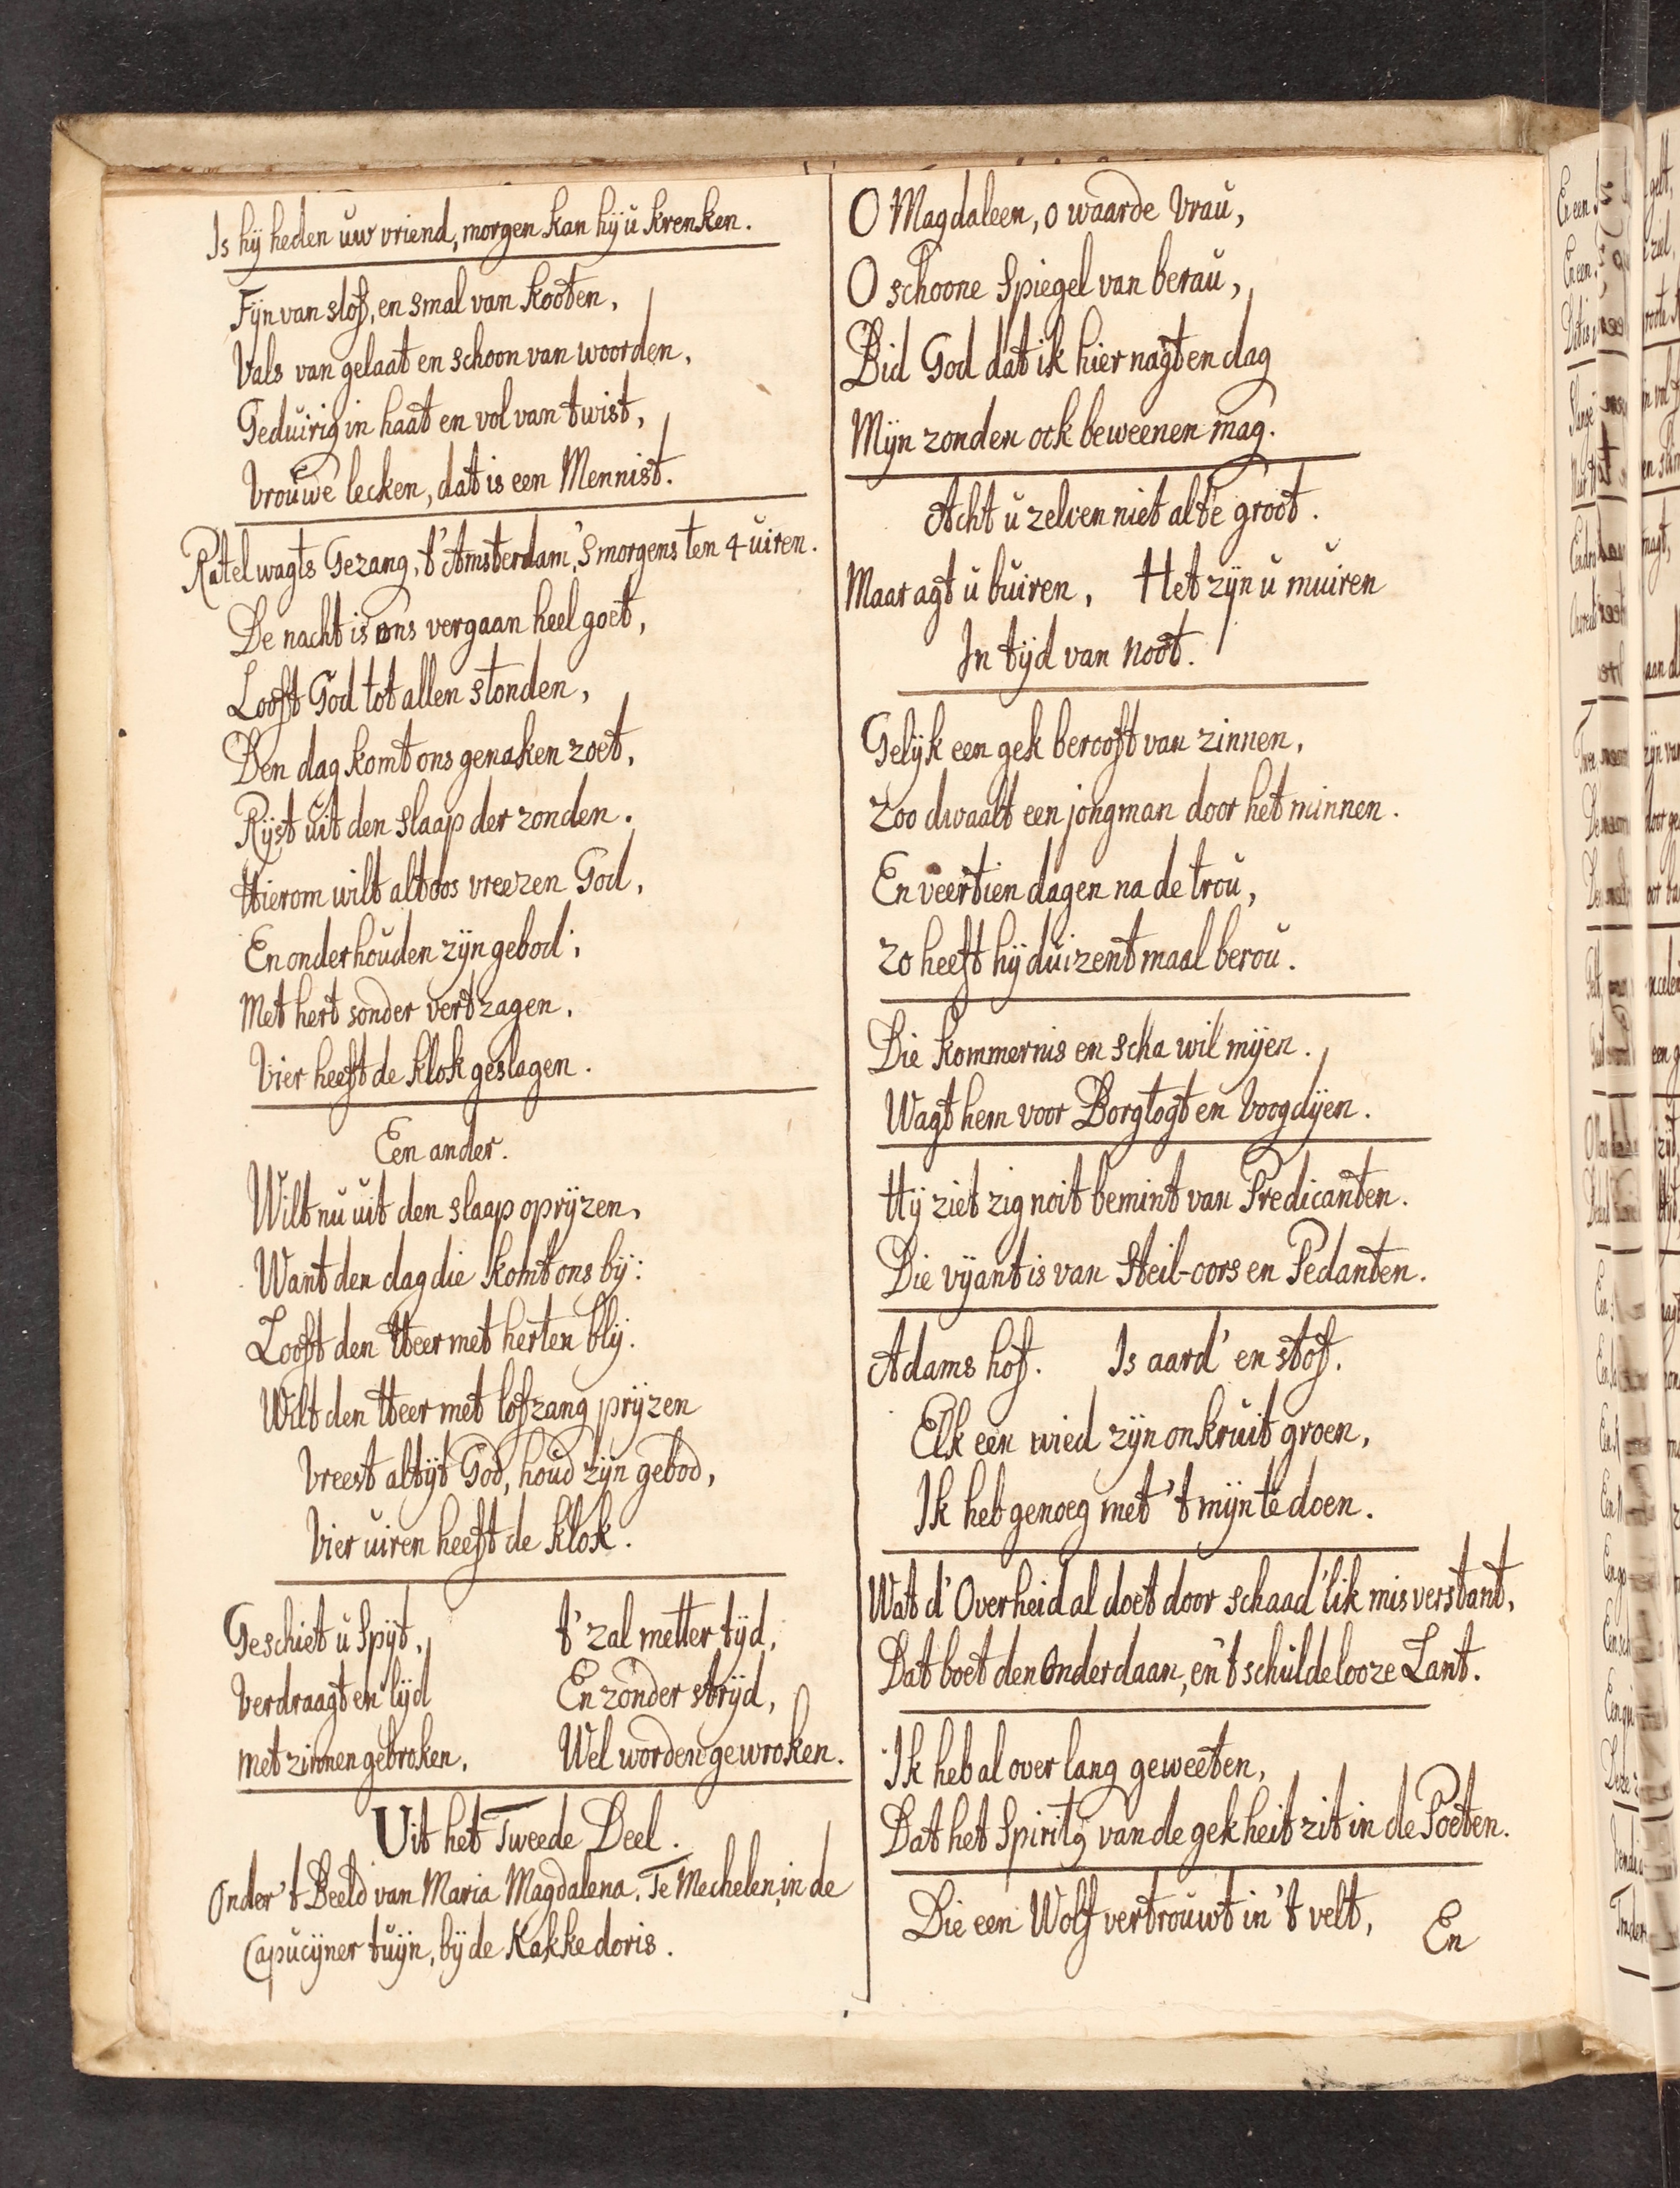 Is hÿ heden uw vriend, morgen kan hÿ u krenken.
Fÿn van stof, en smal van kooten,
Vals van gelaat en schoon van woorden,
Geduirig in haat en vol van twist,
Vrouwe lecken, dat is een Mennist.
Ratelwagts Gezang, t'Amsterdam, 'Smorgens ten 4 uiren.
De nacht is ons vergaan heel goet,
Looft God tot allen stonden,
Den dag komt ons genaken zoet,
Rÿst uit den slaap der zonden.
Hierom wilt altoos vreezen God,
En onderhouden zÿn gebod;
Met hert sonder vertzagen,
Vier heeft de klok geslagen.
Een ander.
Wilt nu uit den slaap oprÿzen,
Want den dag die komt ons bÿ:
Looft den Heer met herten blÿ.
Wilt den Heer met lofzang prÿzen
Vreest altÿt God, houd zÿn gebod,
Vier uiren heeft de klok.
Geschiet u Spÿt, t'zal metter tÿd,
Verdraagt en lÿd En zonder strÿd,
Met zinnen gebroken, Wel worden gewroken.
Uit het Tweede Deel.
Onder 't Beeld van Maria Magdalena, Te Mechelen, in de
Capucÿner tuÿn, bÿ de Kakkedoris.
O Magdaleen, o waarde Vrau,
O schoone Spiegel van berau,
Bid God dat ik hier nagt en dag
Mÿn zonden ock beweenen mag.
Acht u zelven niet al te groot.
Maar agt u buiren, Het zÿn u muiren
In tÿd van noot.
Gelÿk een gek berooft van zinnen,
Zoo dwaalt een jongman door het minnen.
En veertien dagen na de trou,
Zo heeft hÿ duizentmaal berou.
Die kommernis en scha wil mÿen.
Wagt hem voor Borgtogt en Voogdÿen.
Hÿ ziet zig noit bemint van Predicanten.
Die vÿant is van Steil-oors en Pedanten.
Adams hof. Is aard' en stof.
Elk een wied zÿn onkruit groen,
Ik heb genoeg met 't mÿn te doen.
Wat d'Overheid al doet door schaad'lik misverstant,
Dat boet den Onderdaan, en 't schuldelooze Lant.
Ik heb al over lang geweeten,
Dat het Spiritg van de gekheit zit in de Poeten.
Die een Wolf vertrouwt in 't velt,
En